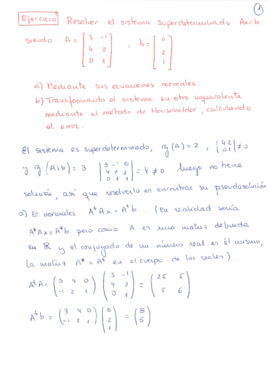 1
Ejercicio Resolver el sistema superdeterminado Ax=b
siendo A = [3 -1; 4 2; 0 1], b = [0; 2; 1]
a) Mediante sus ecuaciones normales.
b) Transformando el sistema en otro equivalente
mediante el método de Householder, calculando
el error.
El sistema es superdeterminado, rg(A) = 2, |4 2; 0 1| ≠ 0
y rg(A|b) = 3 |3 -1 0; 4 2 2; 0 1 1| = 4 ≠ 0 luego no tiene
solución, así que resolverlo es encontrar su pseudosolución
a) Ec normales AᵗAx = Aᵗb. (En realidad sería
A*Ax = A*b pero como A es una matriz definida
en R y el conjugado de un número real es él mismo,
la matriz A* = Aᵗ en el cuerpo de los reales).
AᵗA = (3 4 0; -1 2 1) (3 -1; 4 2; 0 1) = (25 5; 5 6)
Aᵗb = (3 4 0; -1 2 1) (0; 2; 1) = (8; 5)